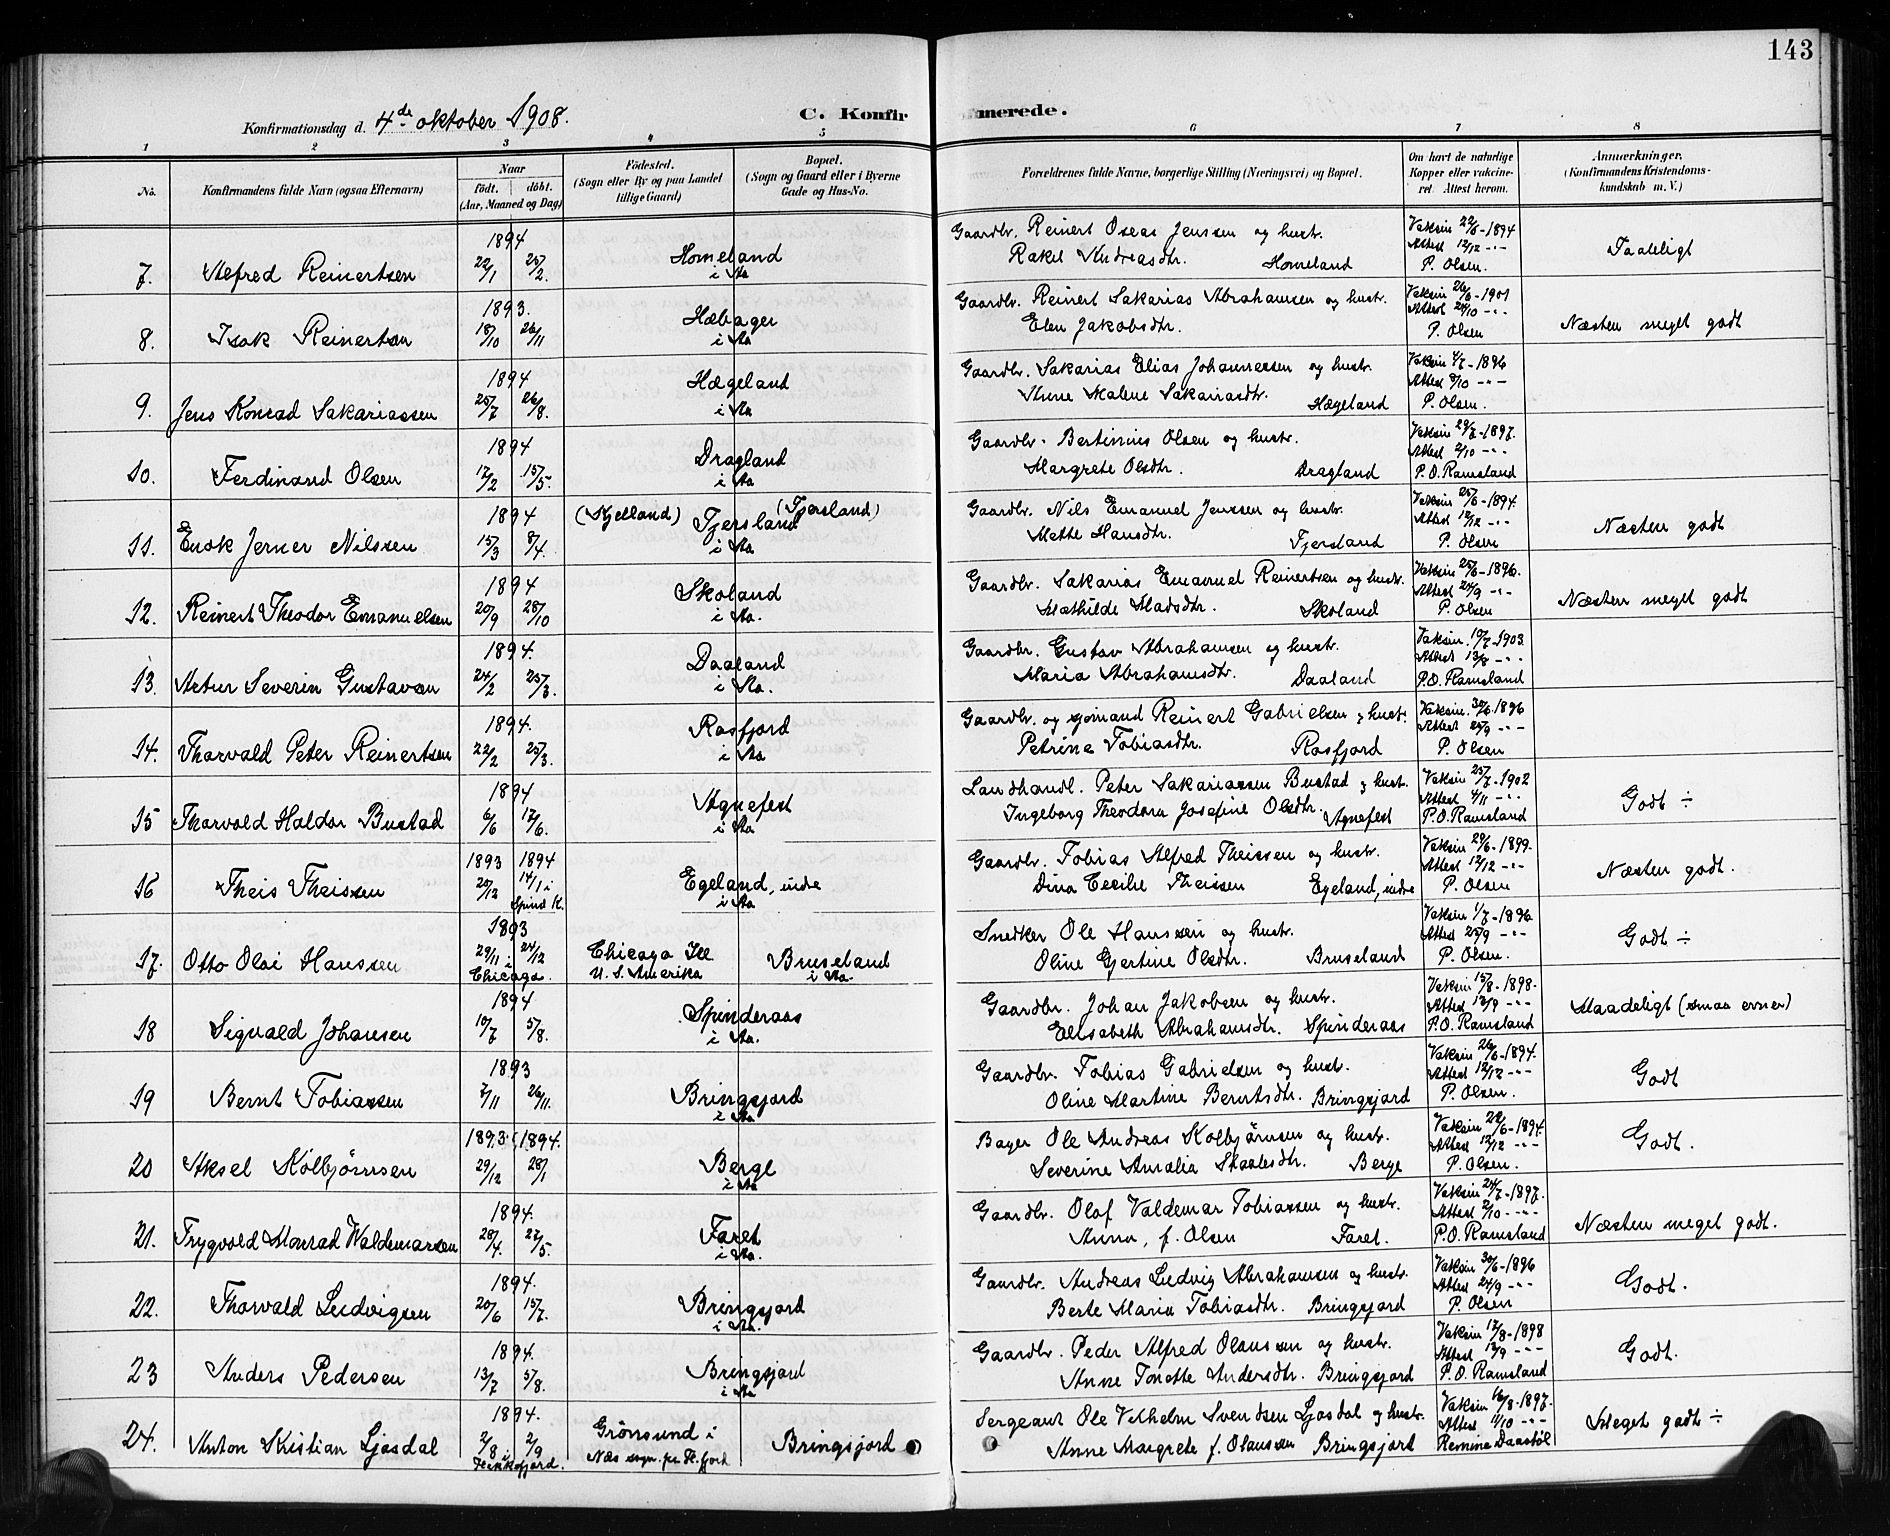 143
Konfirmationsdag d. 4de oktober 1908.
C. Konfirmerede.
1 2 3 4 5 6 7 8
No.
Konfirmandens fulde Navn (ogsaa Efternavn)
Naar
født. døbt.
(Aar, Maaned og Dag)
Fødested.
(Sogn eller By og paa Landet
tillige Gaard)
Bopæl.
(Sogn og Gaard eller i Byerne
Gade og Hus-No.
Forældrenes fulde Navne, borgerlige Stilling (Næringsvei) og Bopæl.
Om havt de naturlige
Kopper eller vakcine-
ret. Attest herom.
Anmærkninger.
(Konfirmandens Kristendoms-
kundskab m. V.)
7. Alfred Reinertsen 1894 22/1 25/2. Homeland i Aa
Gaardbr. Reinert Oseas Jenssen og hustr.
Rakel Andreasdtr. Homeland
Vaksin 22/6-1894
Attest 12/12 -"-
P. Olsen.
Taaleligt
8. Isak Reinertsen 1893. 18/10 26/11 Hæbager i Aa
Gaardbr. Reinert Sakarias Abrahamsen og hustr.
Elen Jakobsdtr.
Vaksin 26/6-1901
Attest 24/10 -"-
P. Olsen
Næsten meget godt
9. Jens Konrad Sakariassen 1894 25/7 26/8. Hægeland i Aa
Gaardbr. Sakarias Elias Johannessen og hustr.
Anne Malene Sakariasdtr. Hægeland
Vaksin 4/7-1896
Attest 9/10 -"-
P. Olsen.
10. Ferdinand Olsen 1894 17/2 15/5. Dragland i Aa
Gaardbr. Bertinius Olsen og hustr.
Margrete Olsdtr. Dragland
Vaksin 29/7-1897.
Attest 2/10 -"-
P. O. Ramsland
11. Enok Jerner Nilssen 1894 15/3 8/4. (Kjelland) Tjersland (Tjersland) i Aa
Gaardbr. Nils Emanuel Jenssen og hustr.
Mette Hansdtr. Tjersland
Vaksin 25/6-1894.
Attest 12/12 -"-
P. Olsen
Næsten godt
12. Reinert Theodor Emanuelsen 1894 20/9 28/10 Skoland i Aa.
Gaardbr. Sakarias Emanuel Reinertsen og hustr.
Mathilde Madsdtr. Skoland
Vaksin 25/6-1896.
Attest 24/9 -"-
P. Olsen
Næsten meget godt
13. Artur Severin Gustavsen 1894. 24/2 25/3. Daaland i Aa.
Gaardbr. Gustav Abrahamsen og hustr.
Maria Abrahamsdtr. Daaland
Vaksin. 10/7-1903.
Attest 13/8 -"-
P.O. Ramsland
14. Thorvald Peter Reinertsen 1894. 22/2 25/3. Rosfjord i Aa
Gaardbr. og sjømand Reinert Gabrielsen & hustr.
Petrine Tobiasdtr. Rosfjord
Vaksin. 30/6 1896
Attest 25/9 -"-
P. Olsen
15 Thorvald Haldor Bustad 1894 6/6 17/6. Agnefest i Aa
Landhandl. Peter Sakariassen Bustad & hustr.
Ingeborg Theodora Josefine Olsdtr. Agnefest
Vaksin 25/7-1902
Attest 4/11 -"-
P.O. Ramsland
Godt ÷
16 Theis Theissen 1893 1894 25/12 14/1 i Spind K. Egeland, indre i Aa
Gaardbr. Tobias Alfred Theissen og hustr.
Dina Cecilie Theissen Egeland, indre
Vaksin 29/6-1899.
Attest 12/12 -"-
P. Olsen
Næsten godt.
17. Otto Olai Hanssen 1893 29/11 24/12 i Chicago. Chicago Ill U. S. Amerika Bruseland i Aa.
Snedker Ole Hanssen og hustr.
Oline Gjertine Olsdtr. Bruseland
Vaksin 1/7-1896
Attest 25/9 -"-
P. Olsen.
Godt ÷
18 Sigvald Johansen 1894 10/7 5/8. Spinderaas i Aa.
Gaardbr. Johan Jakobsen og hustr.
Elisabeth Abrahamsdtr. Spinderaas
Vaksin 15/8-1898.
Attest 12/9 -"-
P.O. Ramsland
Maadeligt (smaa evner)
19 Bernt Tobiassen 1893 7/11 26/11. Bringsjord i Aa
Gaardbr. Tobias Gabrielsen og hustr.
Oline Martine Berntsdtr. Bringsjord
Vaksin 26/6-1894.
Attest 12/12 -"-
P. Olsen.
Godt
20 Aksel Kolbjørnsen 1893. 1894. 29/12 28/1 Berge i Aa
Bager Ole Andreas Kolbjørnsen og hustr.
Severine Amalia Skaalesdtr. Berge
Vaksin 22/6-1894.
Attest 12/12 -"-
P. Olsen.
Godt.
21. Trygvold Monrad Waldemarsen 1894. 28/4. 27/5. Faret i Aa.
Gaardbr. Olaf Valdemar Tobiassen og hustr.
Anna, f. Olsen Faret.
Vaksin 24/7-1897.
Attest 2/10 -"-
P.O. Ramsland
Næsten meget godt.
22. Thorvald Ludvigsen 1894. 20/6 15/7. Bringsjord i Aa.
Gaardbr. Andreas Ludvig Abrahamsen og hustr.
Berte Maria Tobiasdtr. Bringsjord
Vaksin 30/6-1896
Attest 24/9 -"-
P. Olsen
Godt.
23 Anders Pedersen 1894. 13/7 5/8. Bringsjord i Aa
Gaardbr. Peder Alfred Olaussen og hustr.
Anne Tonette Andersdtr. Bringsjord
Vaksin 17/8-1898
Attest 12/9 -"-
P. O. Ramsland
Godt.
24. Anton Kristian Ljosdal 1894. 2/8 2/9 i Flekkefjord. Grønsund i Næs sogn. pr. Fl. fjord Bringsjord
Sergeant Ole Vilhelm Svendsen Ljosdal og hustr.
Anne Margrete f. Olaussen Bringsjord
Vaksin 16/8-1897.
Attest 11/10 -"-
Meget godt ÷